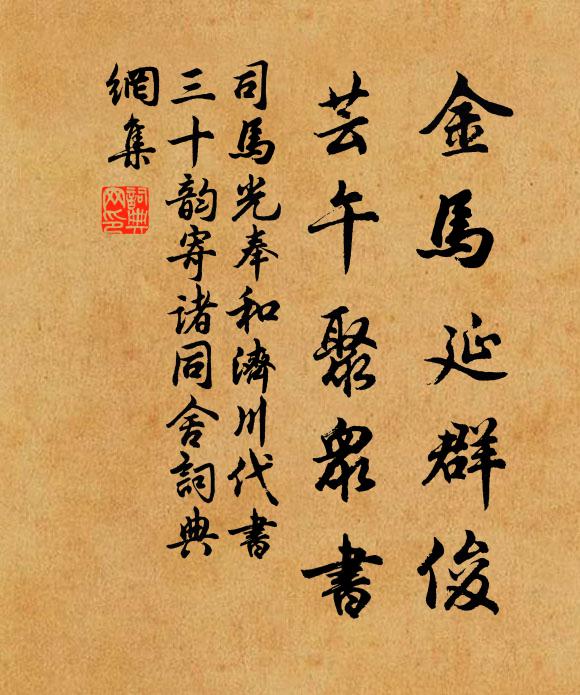 金馬延群俊
芸午聚眾書
司馬光奉和濟川代書
三十韵寄诸同舍詞典
網集
詞典
网印